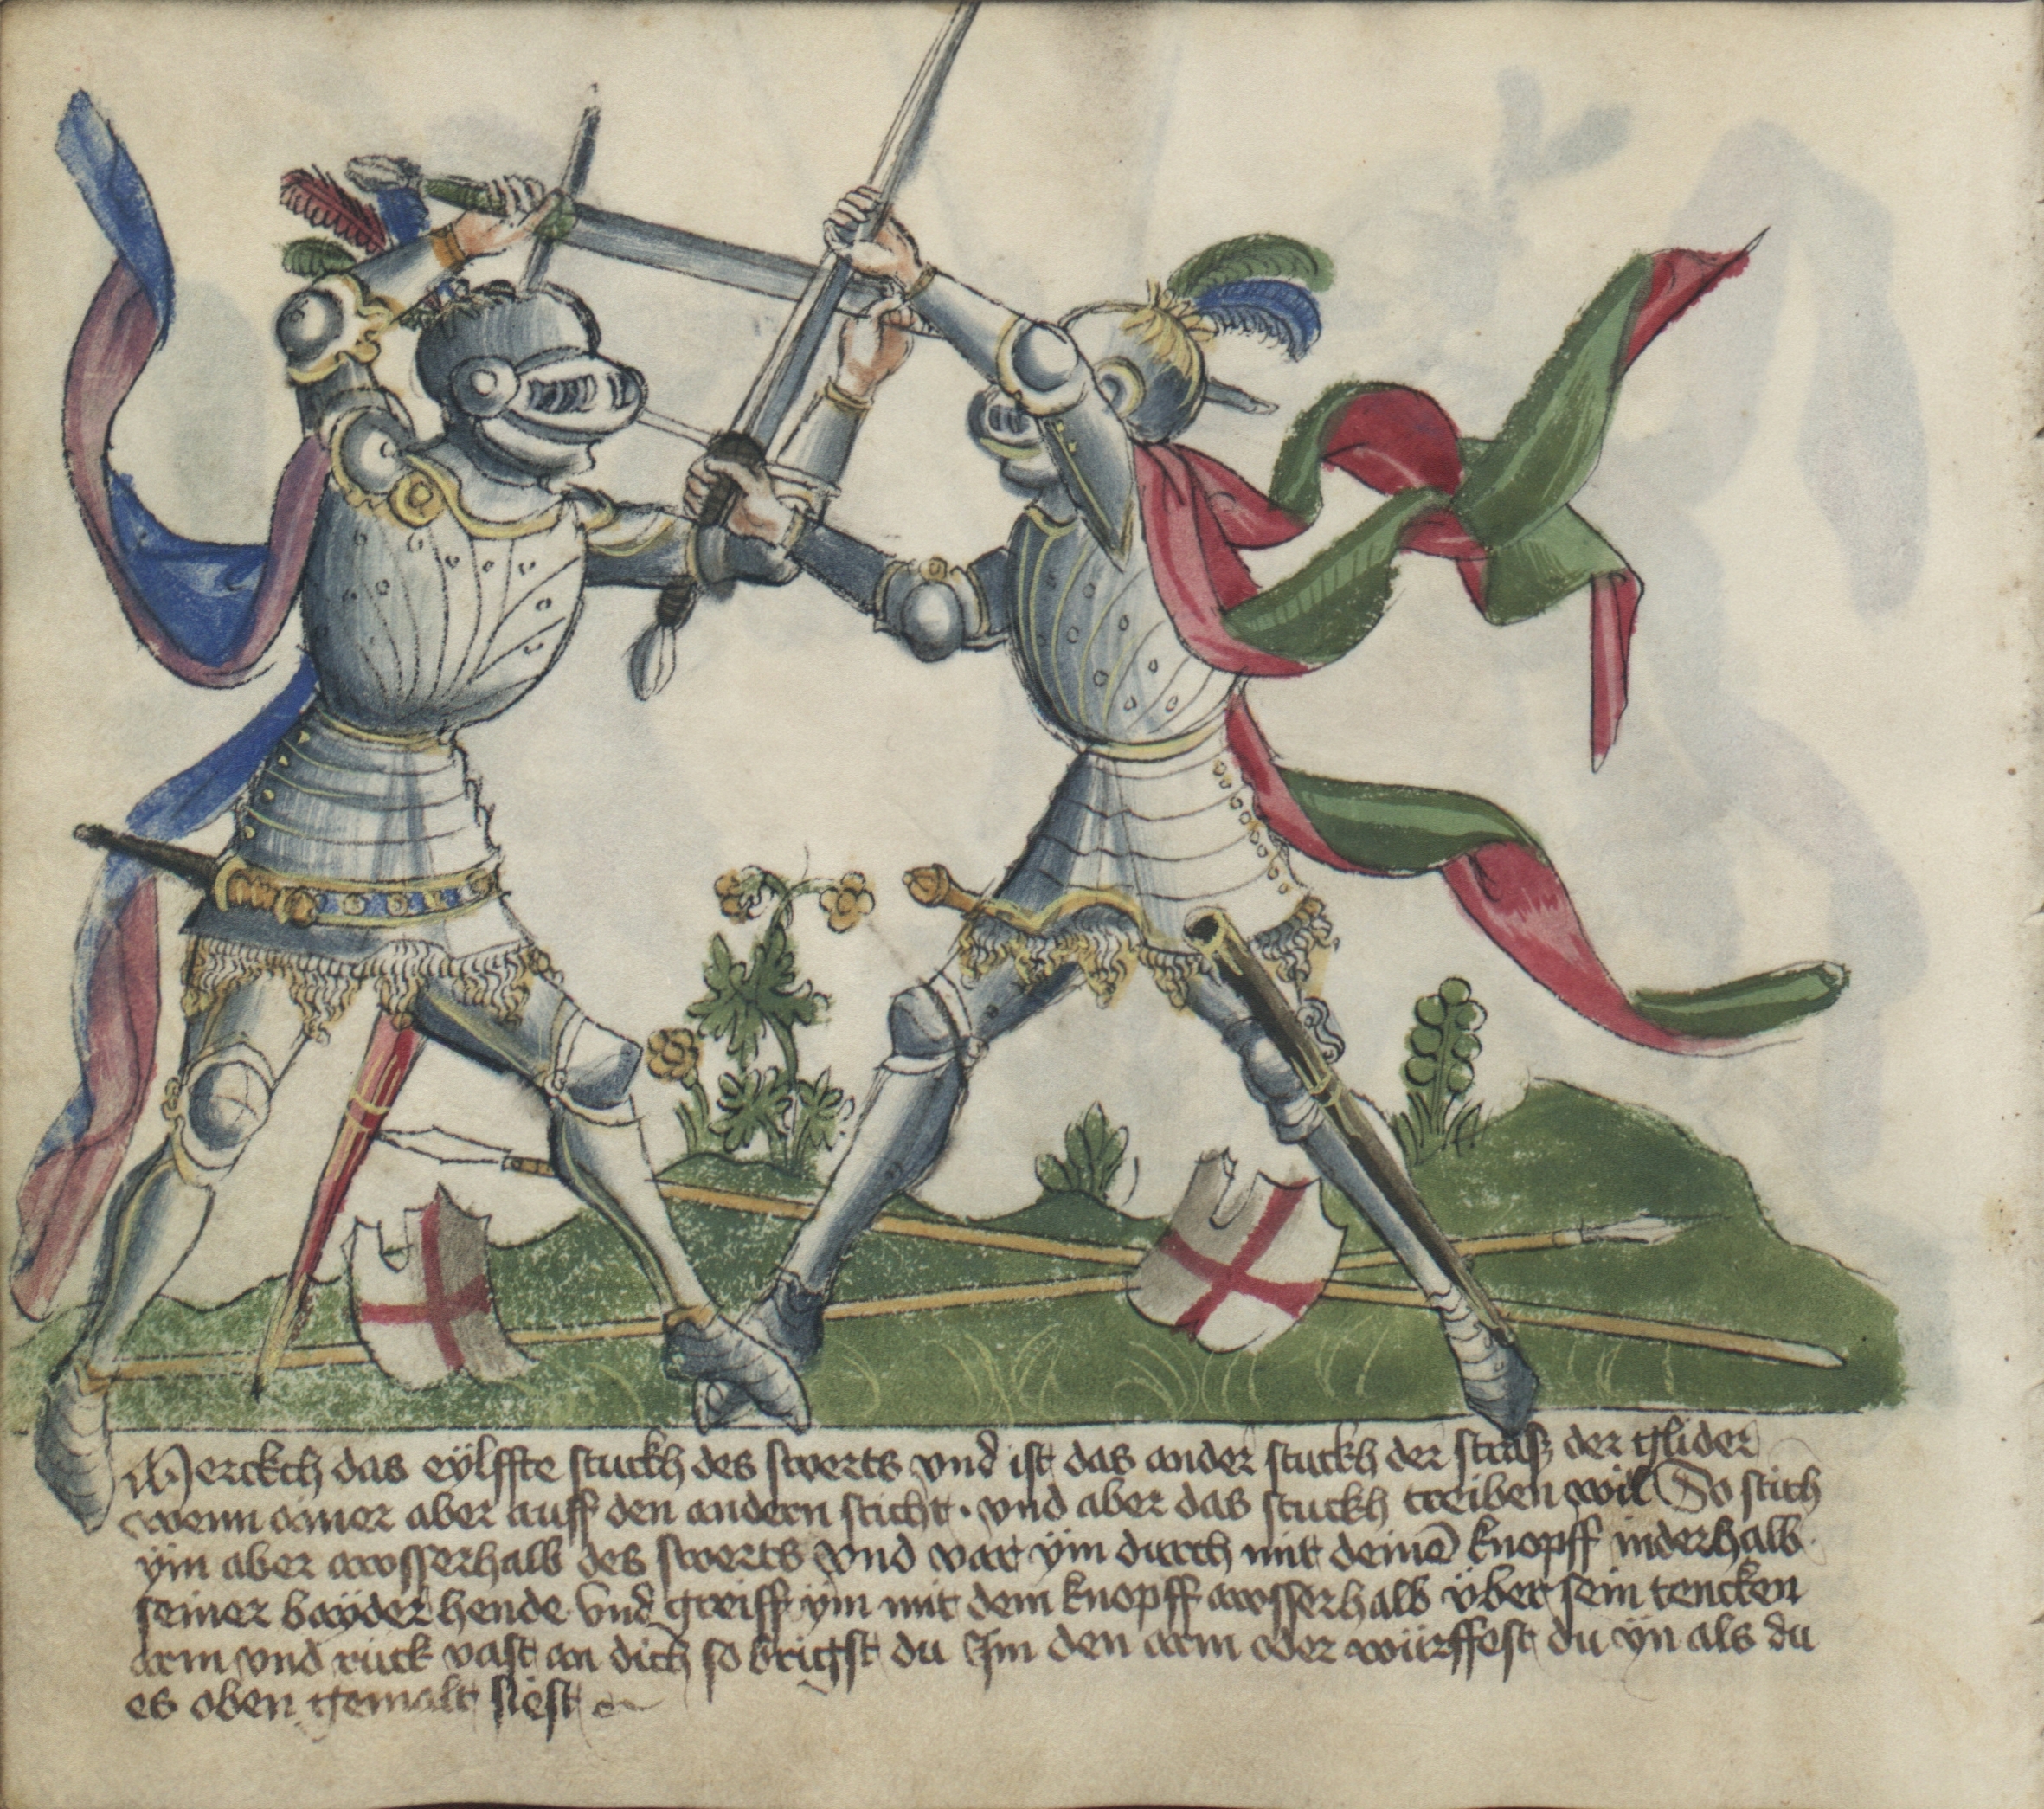 Merckch das eylffte stuckh des swerts vnd ist das ander stuckh der straß der glider
wenn ainer aber auff den andern sticht · vnd aber das stuckh treiben wil So stich
ÿm aber awsserhalb des swerts vnd var ÿm durch mit deinē knopff inderhalb
seiner bayder hende vnd greiff ÿm mit dem knopff awsserhalb über sein tencken
arm vnd ruck vast an dich so brichst du Im den arm oder würffest du ÿn als du
es oben gemalt siest